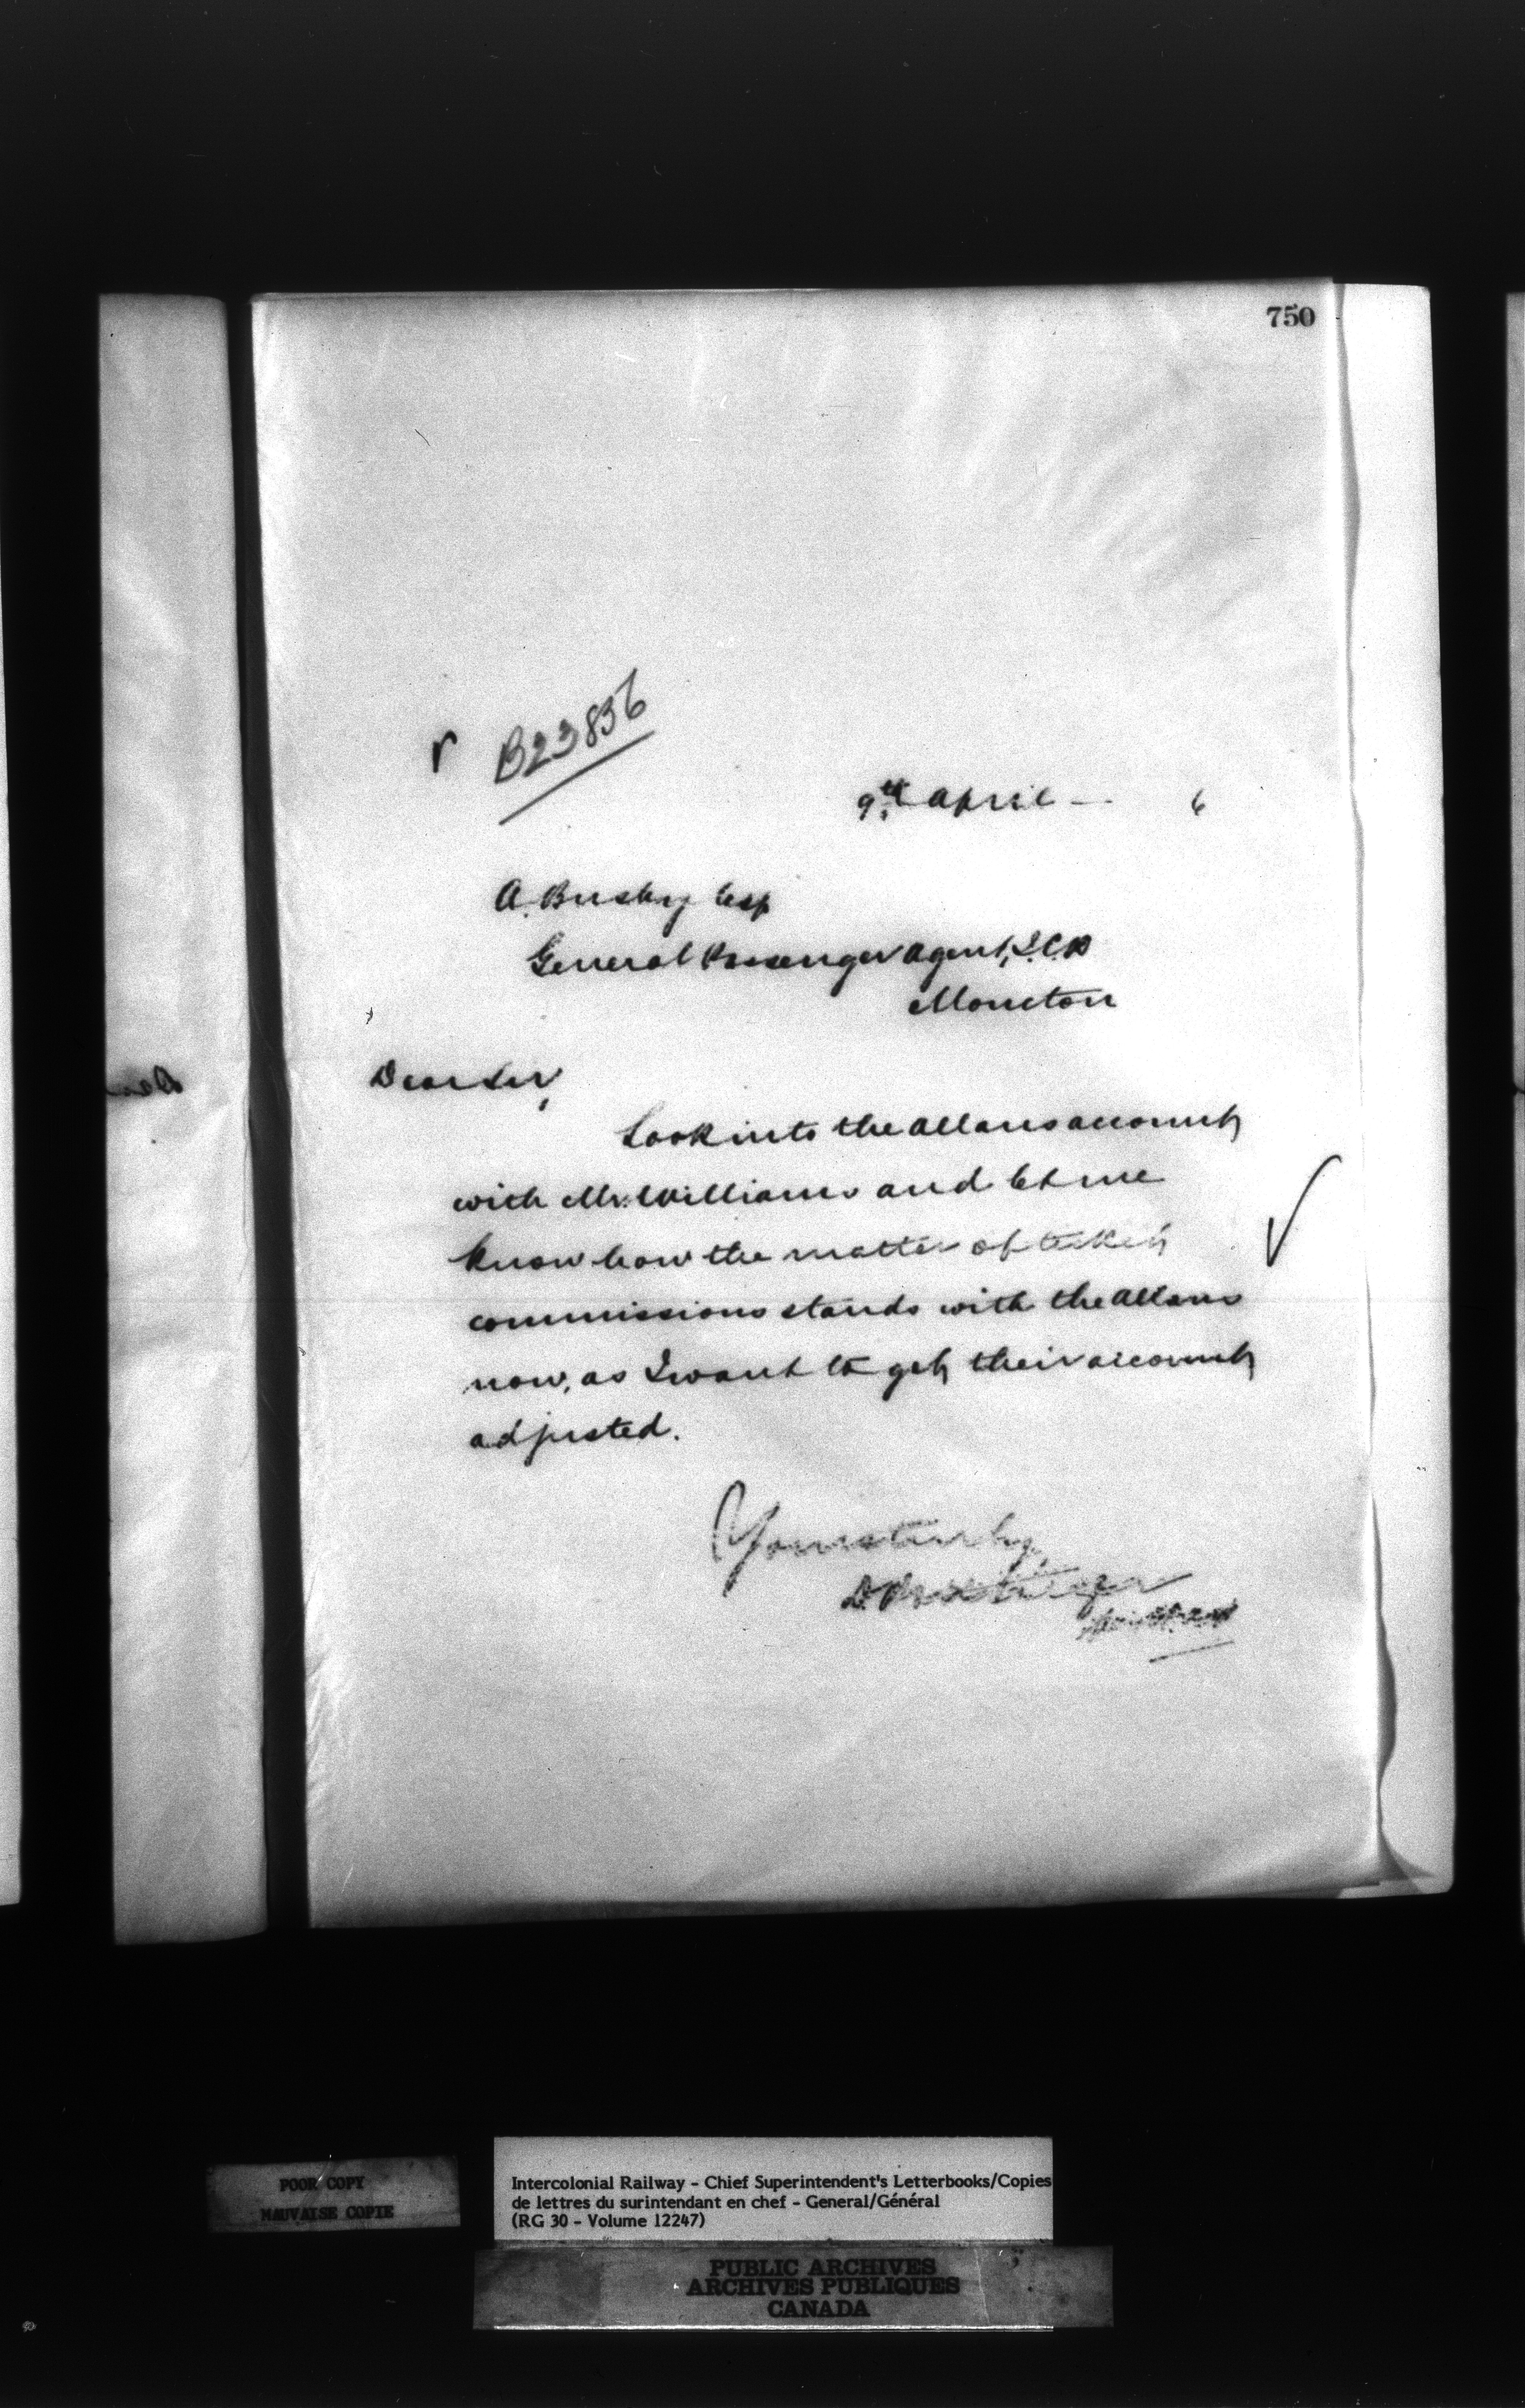 750
B23836
9th April — 6
A. Busby Esq
General Passenger Agent, I.C.R
Moncton
Dear Sir,
Look into the Allans accounts
with Mr. Williams and let me
know how the matter of ticket
commissions stands with the Allans
now, as I want to get their accounts
adjusted.
Yours truly,
D Pottinger
POOR COPY
MAUVAISE COPIE
Intercolonial Railway - Chief Superintendent's Letterbooks/Copies
de lettres du surintendant en chef - General/Général
(RG 30 - Volume 12247)
PUBLIC ARCHIVES
ARCHIVES PUBLIQUES
CANADA